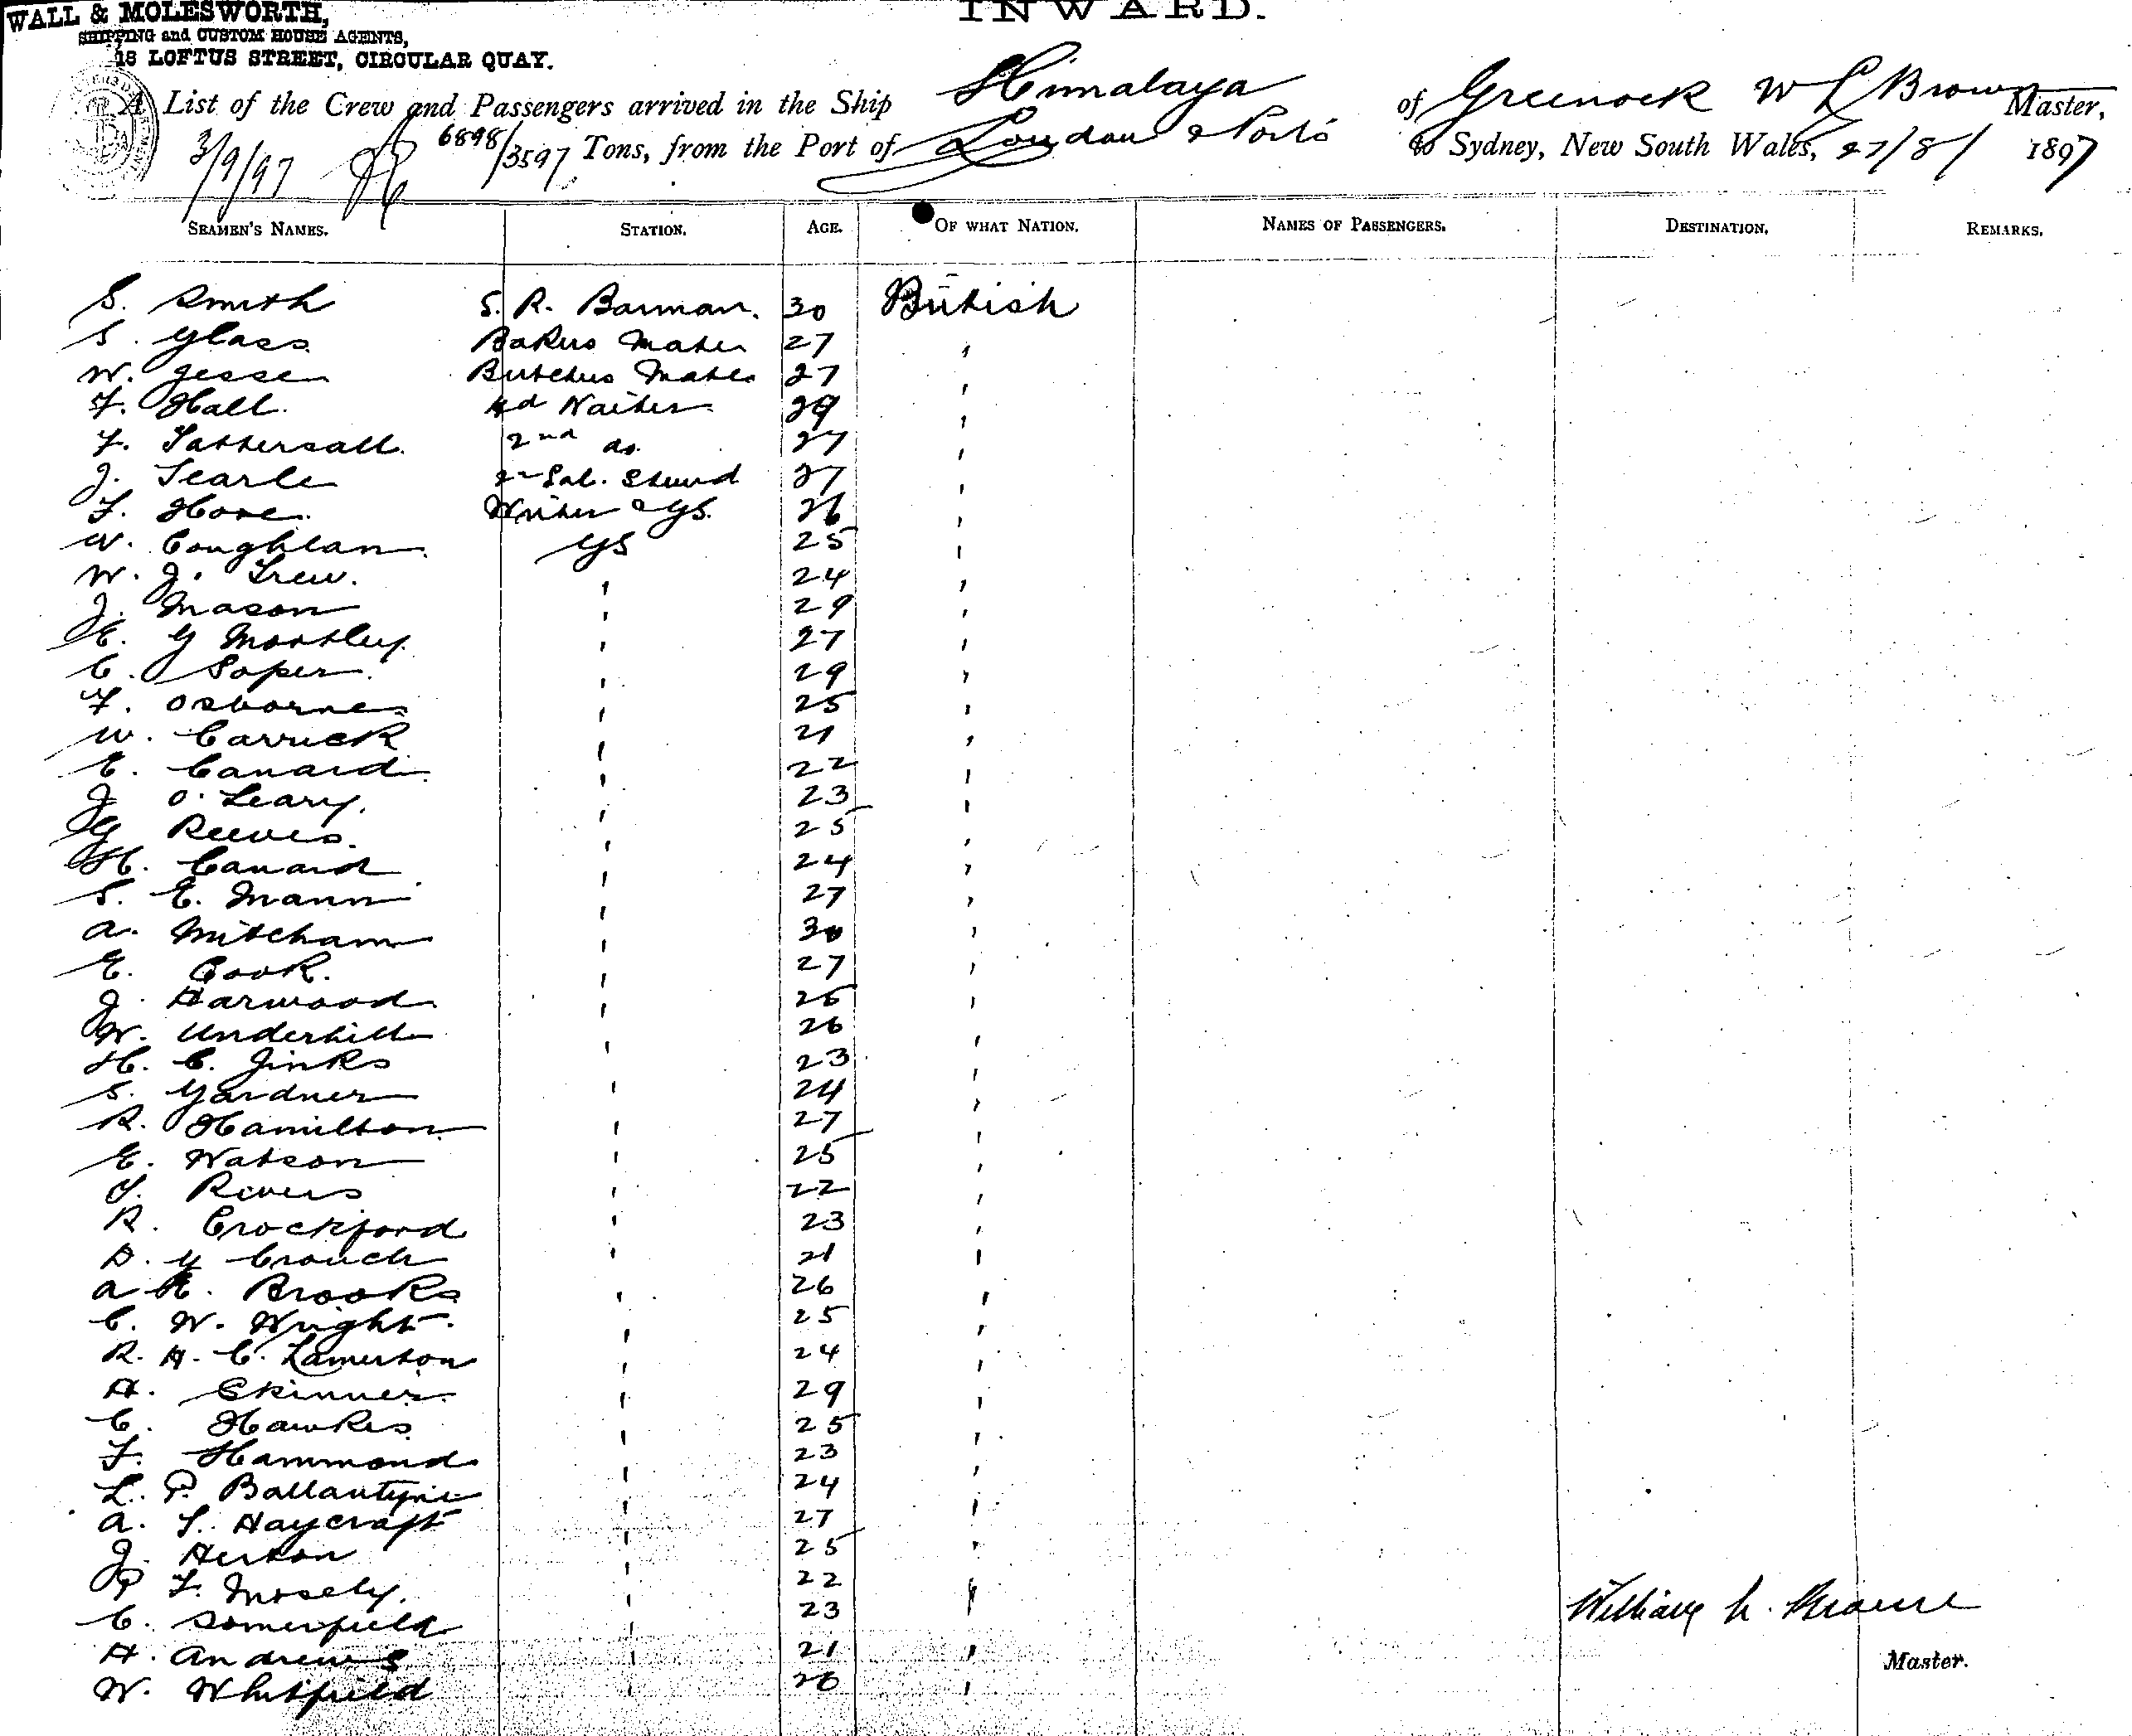 INWARD.
WALL & MOLESWORTH,
SHIPPING and CUSTOM HOUSE AGENTS,
18 LOFTUS STREET, CIRCULAR QUAY.
A List of the Crew and Passengers arrived in the Ship Himalaya of Greenock W L Brown Master,
3/9/97 6898/3597 Tons, from the Port of London & Ports to Sydney, New South Wales, 27/8/ 1897
SEAMEN'S NAMES. STATION. AGE. OF WHAT NATION. NAMES OF PASSENGERS. DESTINATION. REMARKS.
S. Smith S. R. Barman. 30 British
S. Glass Bakers Mate 27 "
W. Jesse Butchers Mate 27 "
F. Hall. Hd Waiter 29 "
F. Tattersall. 2nd do. 27 "
J. Searle 2 Sal. Stwd 27 "
F. Hore. Writer & GS. 26 "
W. Coughlan. GS 25 "
W. J. Trew. " 24 "
J. Mason " 29 "
E. G Mortley. " 27 "
C. Soper. " 29 "
F. Osborne " 25 "
W. Carrick " 21 "
E. Canard " 22 "
J O. Leary. " 23 "
G Reeves. " 25 "
H. Canard " 24 "
S. E. Mann " 27 "
A. Mitcham " 30 "
E. Cook. " 27 "
J. Harwood " 25 "
W. Underhill " 26 "
H. C. Jinks " 23 "
S. Gardner " 24 "
R. Hamilton " 27 "
E. Watson " 25 "
T. Rivers " 22 "
R. Crockford " 23 "
D. G Crouch " 21 "
A H. Brooks " 26 "
C. W. Wright. " 25 "
R. H. C. Lamerton " 24 "
H. Skinner. " 29 "
C. Hawkes " 25 "
F. Hammond " 23 "
L. P. Ballantyne " 24 "
A. L. Haycraft " 27 "
J. Herton " 25 "
P F. Mosely. " 22 "
C. Somerfield " 23 "
H. Andrews " 21 "
W. Whitfield " 26 "
William L. Browne
Master.